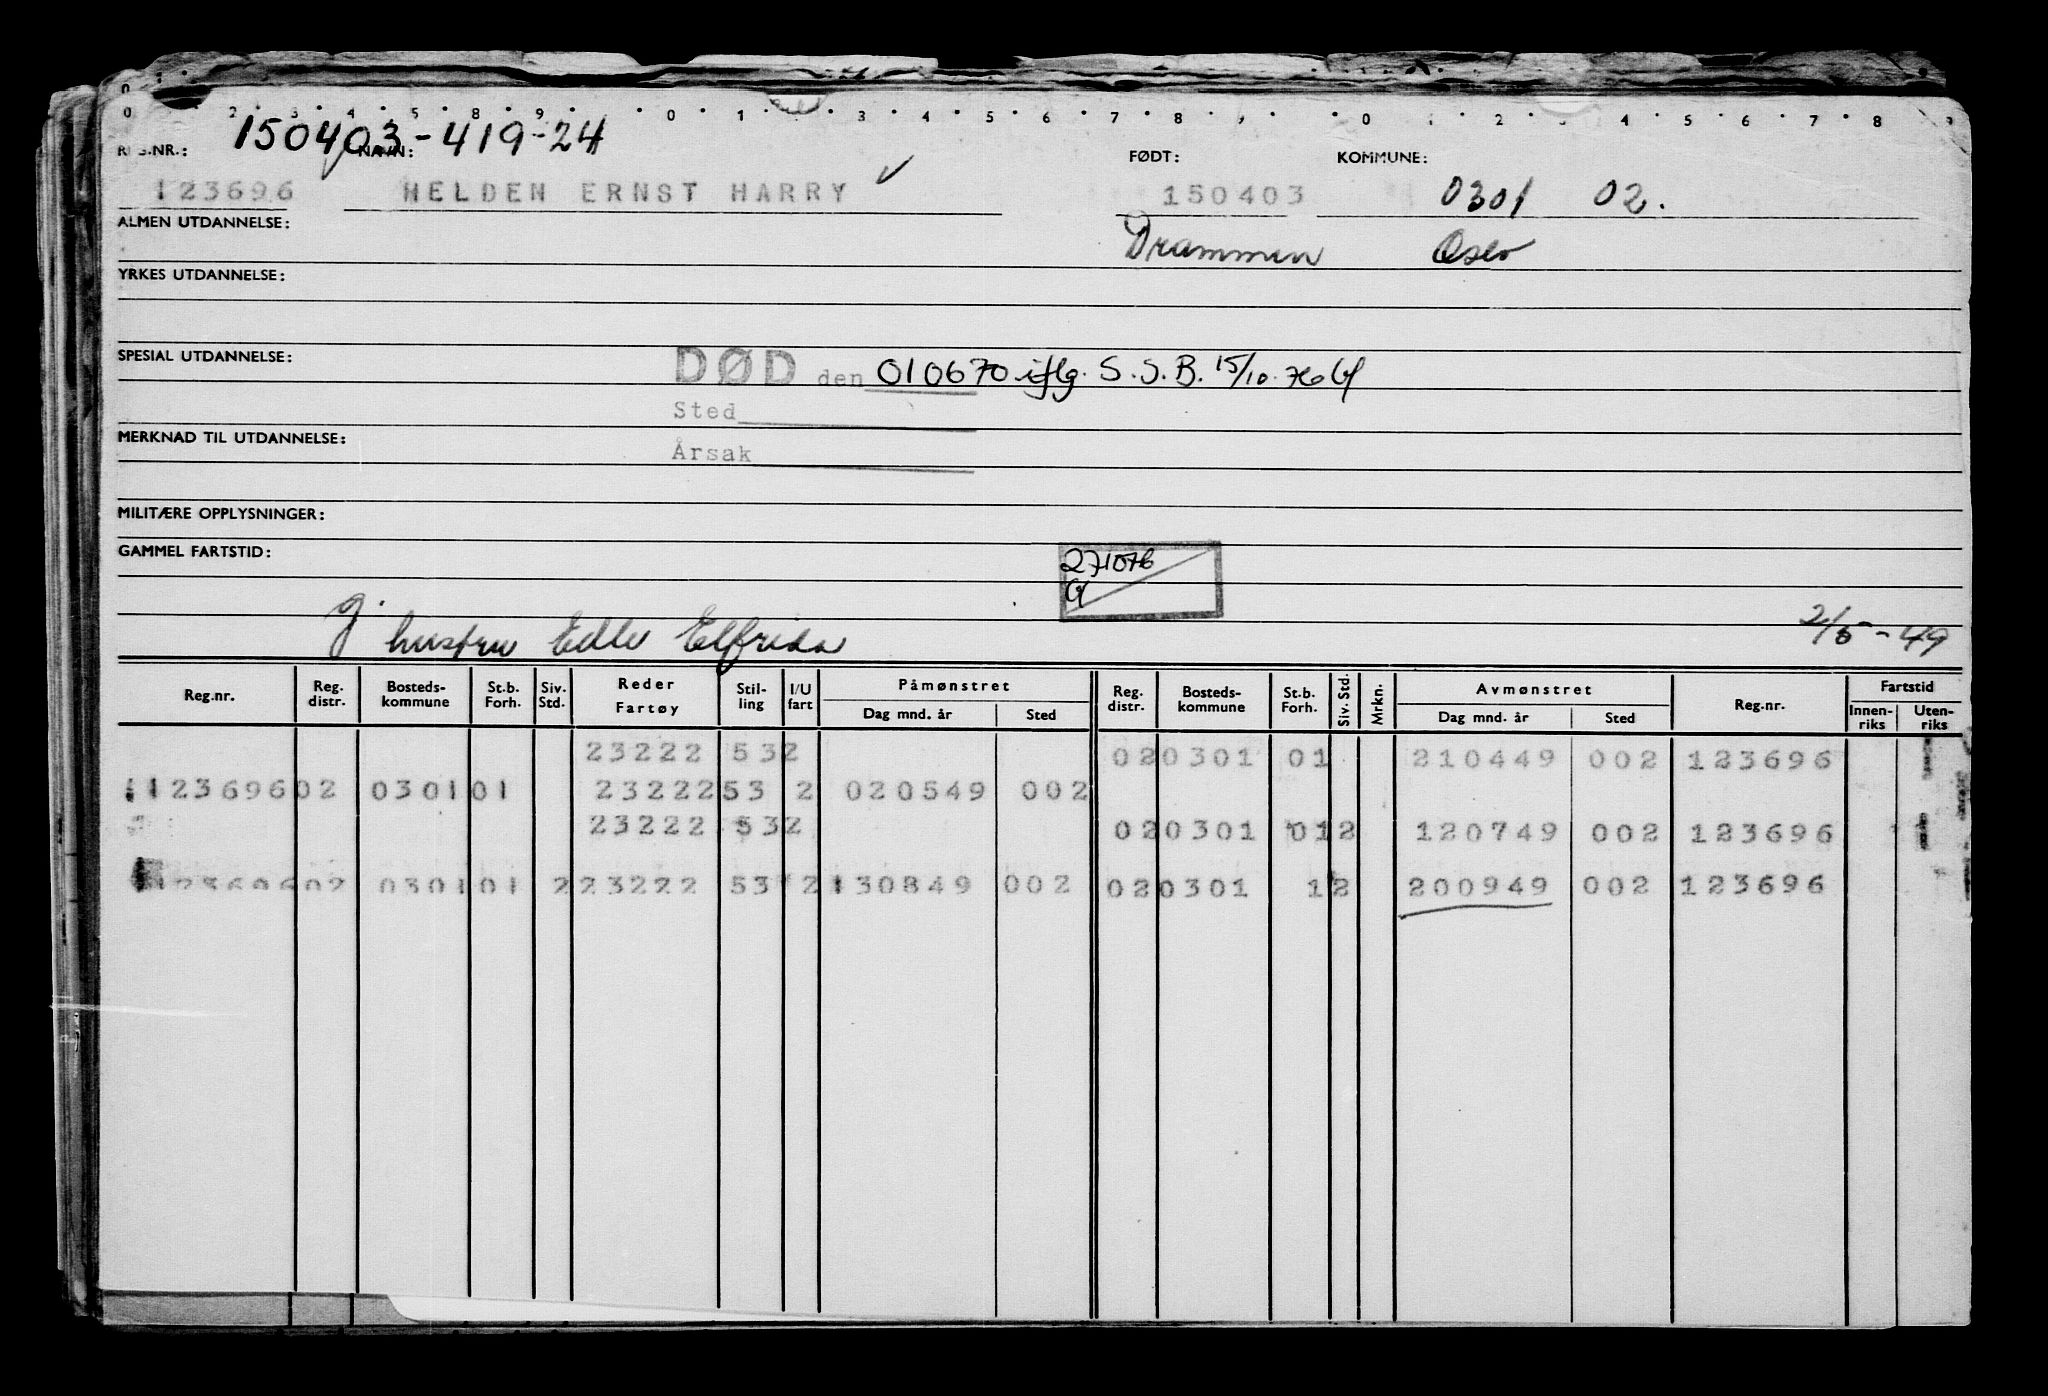 0 2 3 4 5 8 9 0 1 3 4 5 6 7 8 9 0 1 2 3 4 5 6 7 8 9
150403-419-24
REG.NR.: NAVN: FØDT: KOMMUNE:
123696 HELDEN ERNST HARRY ✓ 150403 0301 02.
ALMEN UTDANNELSE: Drammen Oslo
YRKES UTDANNELSE:
SPESIAL UTDANNELSE: DØD den 010670 iflg. S.S.B. 15/10.76
Sted
MERKNAD TIL UTDANNELSE:
Årsak
MILITÆRE OPPLYSNINGER:
GAMMEL FARTSTID: 271076
g. hustru Edle Elfrida 2/5-49
Reg.nr. Reg. distr. Bosteds- kommune St.b. Forh. Siv. Std. Reder Fartøy Stil- ling I/U fart Påmønstret Dag mnd. år Sted Reg. distr. Bosteds- kommune St.b. Forh. Siv. Std. Mrkn. Avmønstret Dag mnd. år Sted Reg.nr. Fartstid Innen- riks Uten- riks
23222 532 020301 01 210449 002 123696
12369602 030101 2322253 2 020549 002
23222 532 020301 012 120749 002 123696
12369602 030101 223222 53 2130849 002 020301 12 200949 002 123696